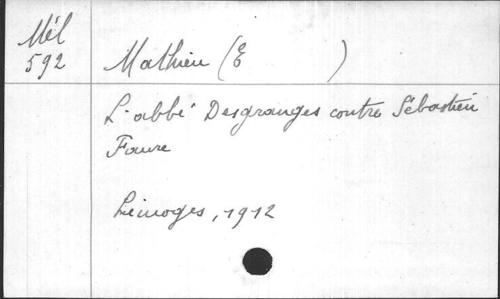 Mél
592
Mathieu (E )
L'abbé Desgranges contre Sébastien
Faure
Limoges, 1912